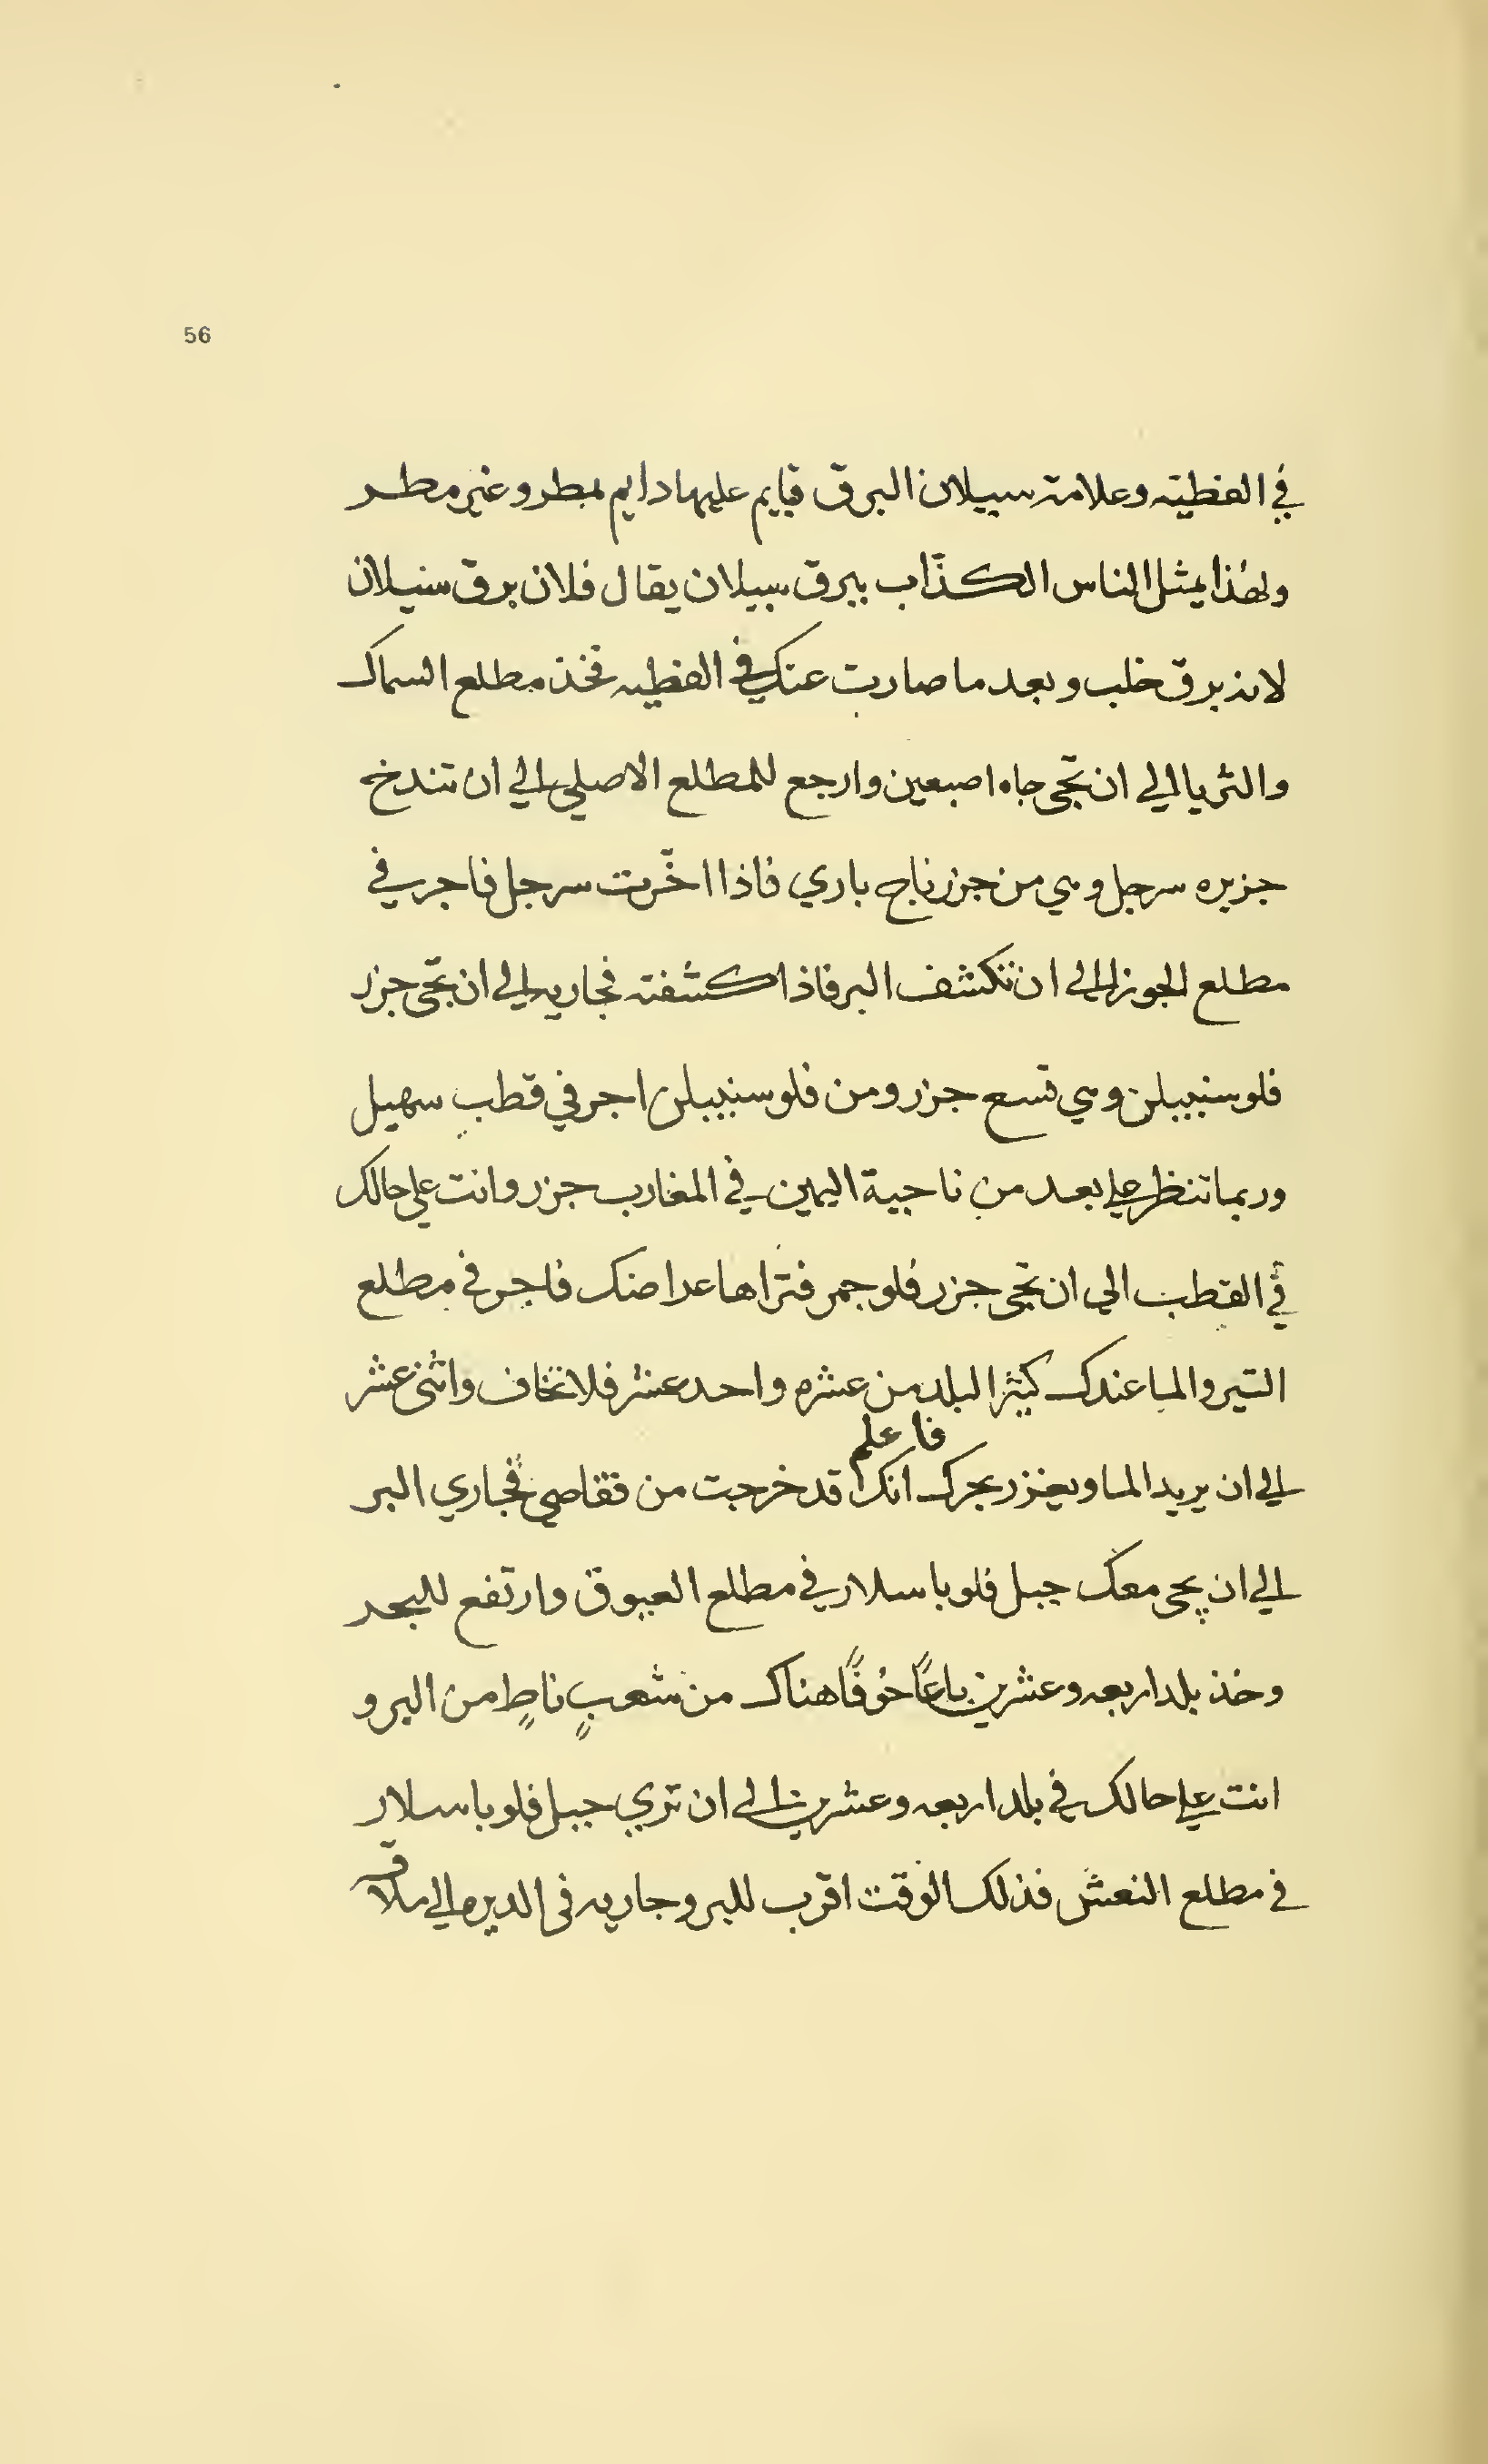 56
في الغطيّه وعلامة سيلان البرق قايم عليها دايم بمطر وغير مطر
ولهذا يمثل الناس الكذّاب ببرق سيلان يقال فلان برق سيلان
لانه برق خلب وبعد ما صارت عنك في الغطيه فخذ مطلع السماك
والثريا الي ان تجي جاه اصبعين وارجع للمطلع الاصلي الي ان تندخ
جزيره سرجل وهي من جزر ناج باري فاذا اخّرت سرجل فاجر في
مطلع الجوزا الي ان تكشف البر فاذا كشفته فجاريه الي ان تجي جزر
فلوسنبيلن وهي تسع جزر ومن فلوسنبيلن اجر في قطب سهيل
وربما تنظر علي بعد من ناحية اليمين في المغارب جزر وانت علي حالك
في القطب الي ان تجي جزر فلوجمر فتراها عراضنك فاجر في مطلع
التير والما عندك كثير البلد من عشره واحد عشر فلا تخاف واثني عشر
فاعلم
الي ان يريد الما ويغزر بحرك انك قد خرجت من قفاصي فجاري البر
الي ان يجي معك جبل فلوباسلار في مطلع العيوق وارتفع للبحر
وخذ بلد اربعه وعشرين باعًا خوفًا هناك من شعبٍ ناطٍ من البر و
انت علي حالك في بلد اربعه وعشرين الي ان تري جبل فلوباسلار
في مطلع النعش فذلك الوقت اقرب للبر وجاريه في الديره الي ملاقه